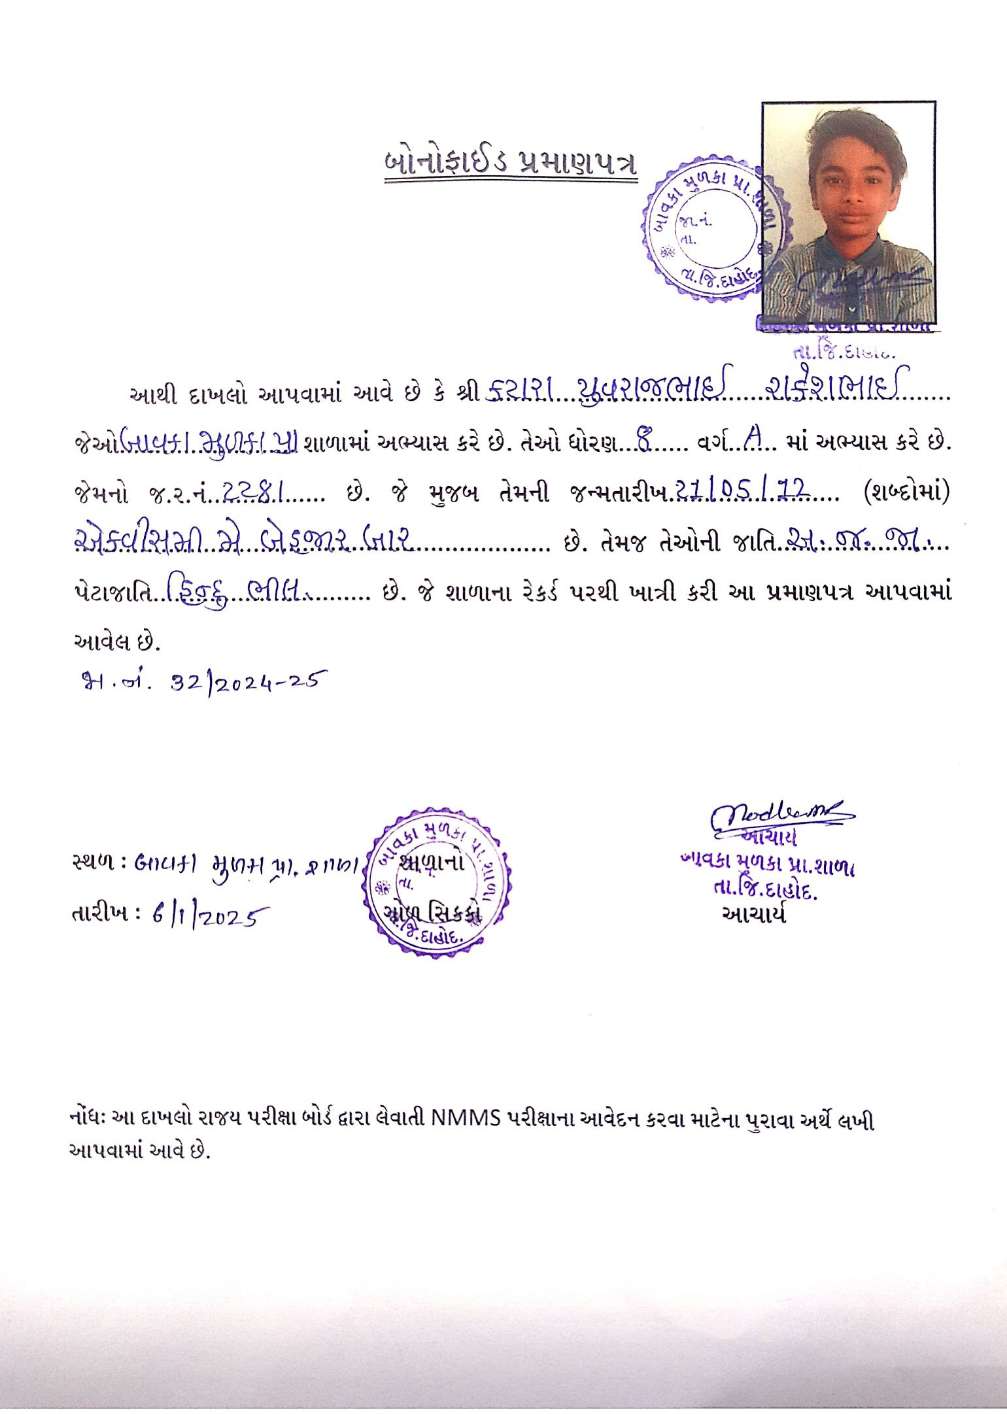 બોનોફાઈડ પ્રમાણપત્ર
બાવકા મુળકા પ્રા.શાળા
જા.નં.
તા.
તા.જિ.દાહોદ
મુળકા પ્રા.શાળા
તા.જિ.દાહોદ.
આથી દાખલો આપવામાં આવે છે કે શ્રી કટારા યુવરાજભાઈ રાકેશભાઈ
જેઓ બાવકા મુળકા પ્રા શાળામાં અભ્યાસ કરે છે. તેઓ ધોરણ...8..... વર્ગ..A... માં અભ્યાસ કરે છે.
જેમનો જ.ર.નં..2281...... છે. જે મુજબ તેમની જન્મતારીખ.21/05/12.... (શબ્દોમાં)
એકવીસમી મે બેહજાર બાર.................. છે. તેમજ તેઓની જાતિ..અ. જ. જા....
પેટાજાતિ..હિન્દુ ભીલ.......... છે. જે શાળાના રેકર્ડ પરથી ખાત્રી કરી આ પ્રમાણપત્ર આપવામાં
આવેલ છે.
જા.નં. 32/2024-25
સ્થળ : બાવકા મુળકા પ્રા. શાળા
તારીખ : 6/1/2025
બાવકા મુળકા પ્રા.શાળા
તા.
તા.જિ.દાહોદ.
શાળાનો
ગોળ સિક્કો
આચાર્ય
બાવકા મુળકા પ્રા.શાળા
તા.જિ.દાહોદ.
આચાર્ય
નોંધઃ આ દાખલો રાજય પરીક્ષા બોર્ડ દ્વારા લેવાતી NMMS પરીક્ષાના આવેદન કરવા માટેના પુરાવા અર્થે લખી
આપવામાં આવે છે.